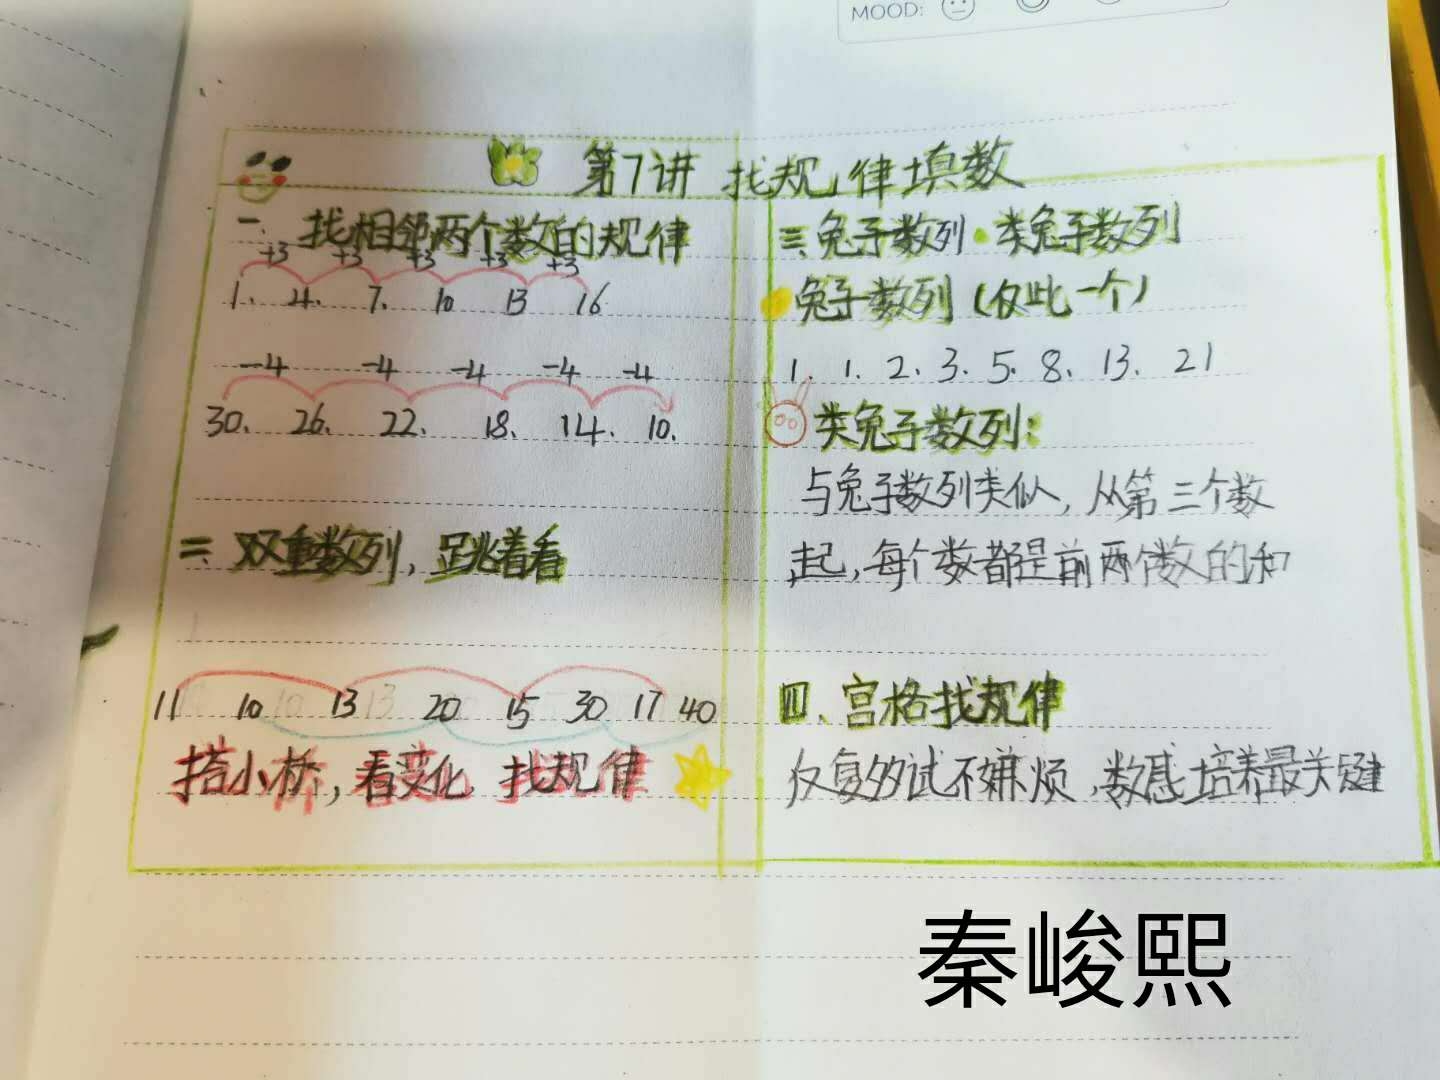 MOOD:
第7讲 找规律填数
一、找相邻两个数的规律
+3 +3 +3 +3 +3
1、4、7、10 13 16
-4 -4 -4 -4 -4
30、26、22、18、14、10、
二、双重数列，跳着看
11 10 13 20 15 30 17 40
搭小桥，看变化 找规律
三、兔子数列·类兔子数列
兔子数列（仅此一个）
1、1、2、3、5、8、13、21
类兔子数列：
与兔子数列类似，从第三个数
起，每个数都是前两个数的和
四、宫格找规律
反复多试不嫌烦，数感培养最关键
秦峻熙